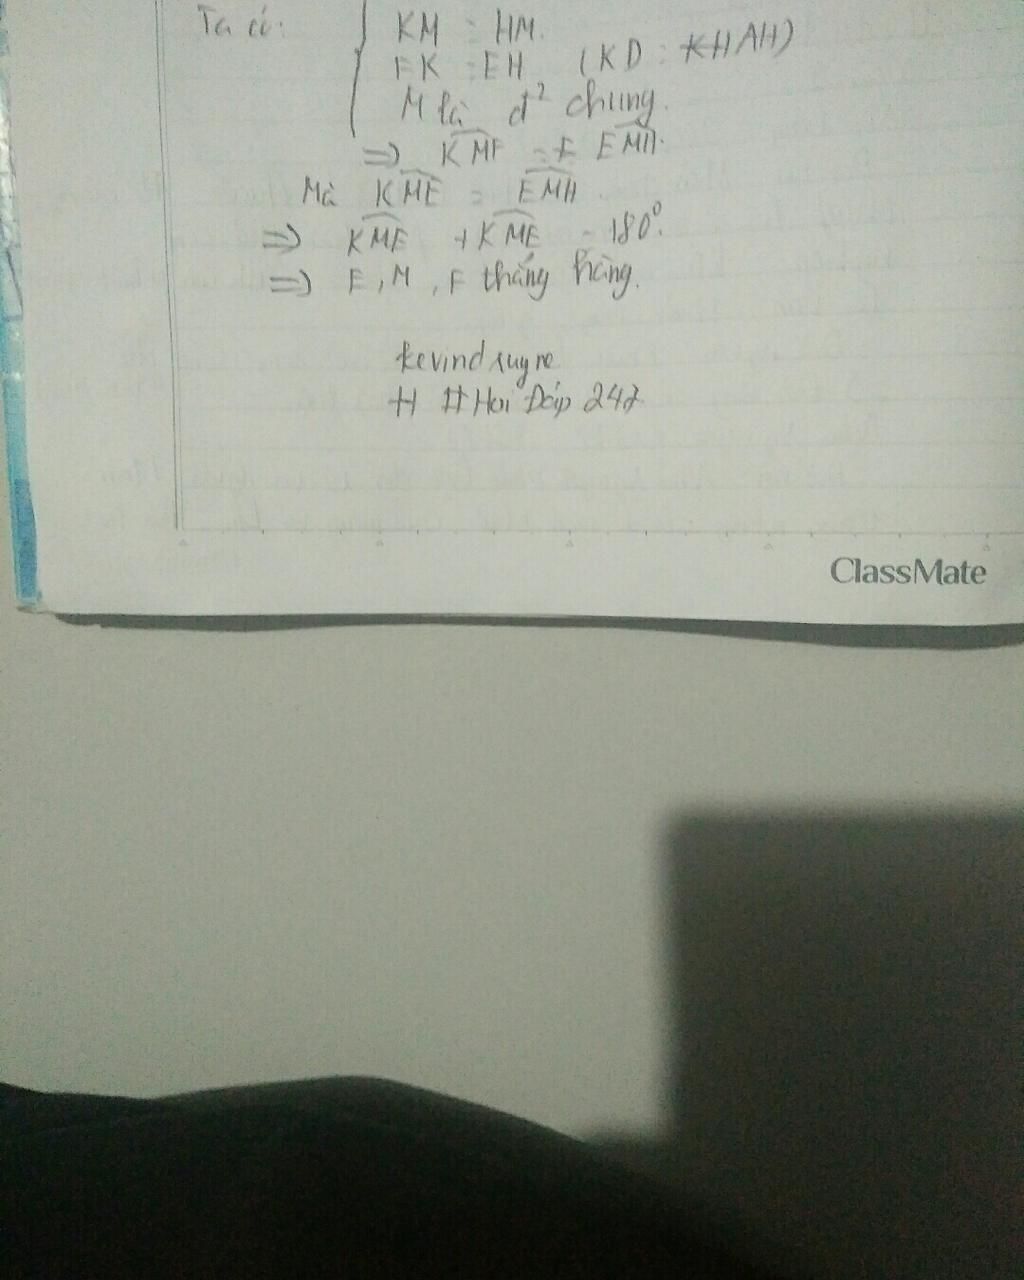 Ta có: KM = HM.
FK = EH (KD = KHAH)
M là đ² chung.
=> KMF = E EMH.
Mà KME = EMH
=> KMF + KME = 180°.
=> E, M, F thẳng hàng.
kevindsuyne
H #Hoi Đáp 247
ClassMate